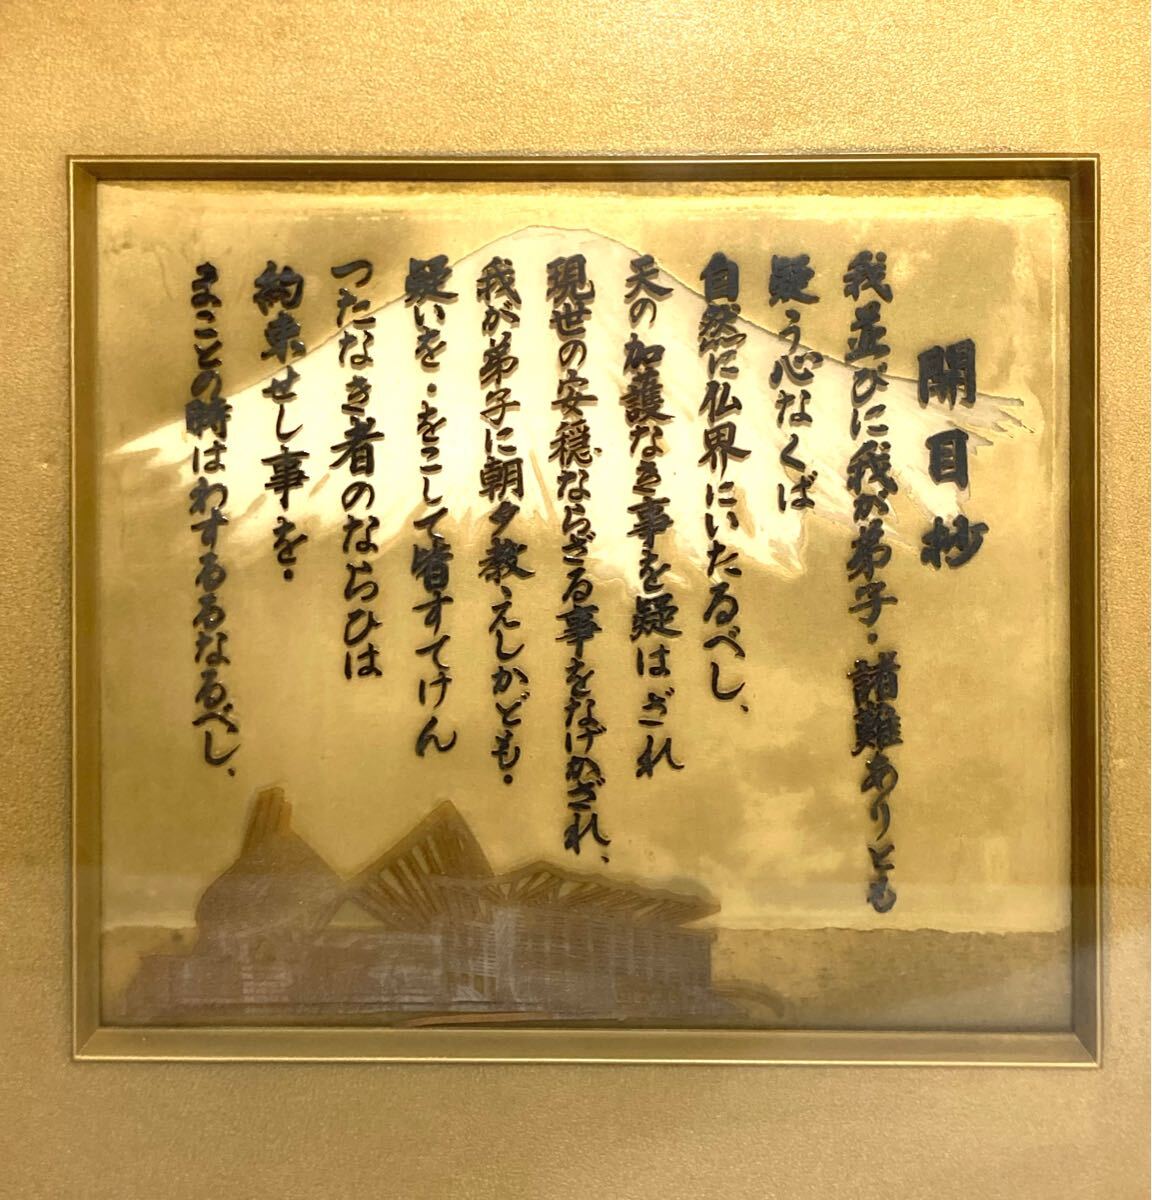 開目抄
我並びに我が弟子・諸難ありとも
疑う心なくば
自然に仏界にいたるべし、
天の加護なき事を疑はざれ
現世の安穏ならざる事をなげかざれ、
我が弟子に朝夕教えしかども・
疑いを・をこして皆すてけん
つたなき者のならひは
約束せし事を・
まことの時はわするるなるべし、